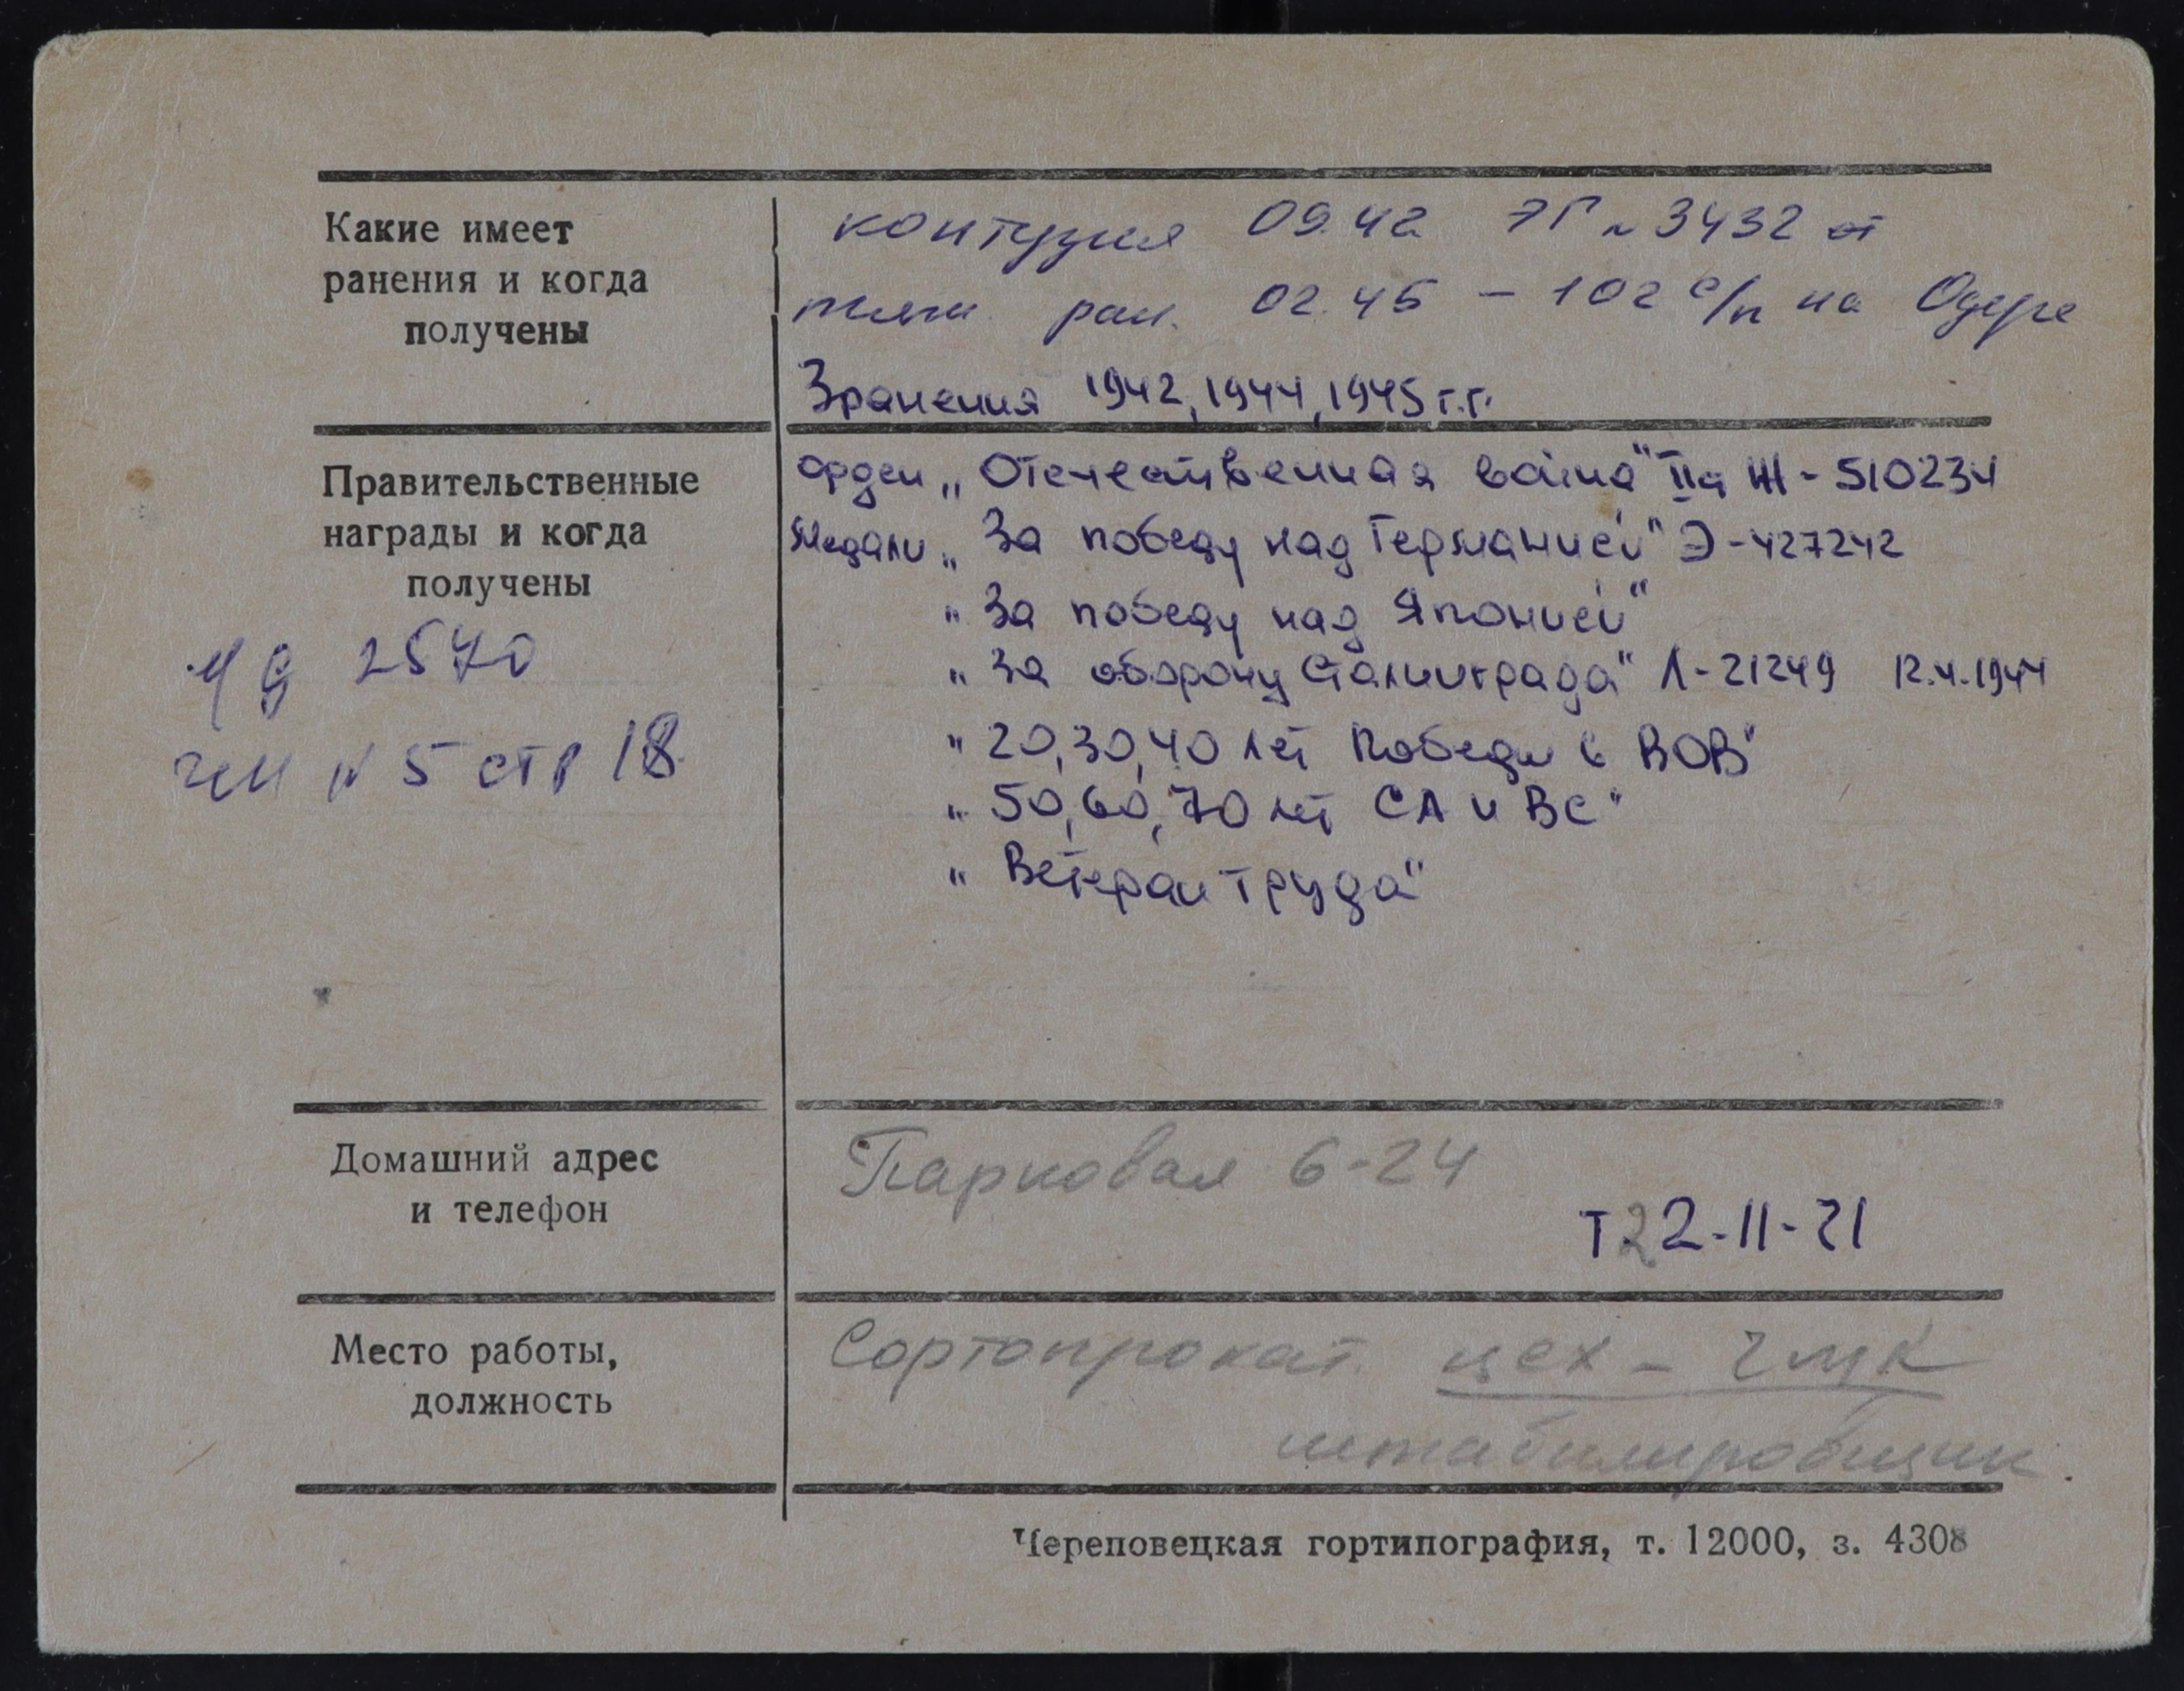 Какие имеет
ранения и когда
получены
контузия 09.42 ЭГ N 3432 от
тяж. ран. 02.45 – 102 с/п на Одере
3 ранения 1942, 1944, 1945 г.г.
Правительственные
награды и когда
получены
орден „Отечественная война" II ст Ж-510234
Медали „За победу над Германией" Э-427242
„За победу над Японией"
„За оборону Сталинграда" Л-21249 12.4.1944
„20, 30, 40 лет Победы в ВОВ"
„50, 60, 70 лет СА и ВС"
„Ветеран труда"
2570
N 5 стр 18
Домашний адрес
и телефон
Парковая 6-24
Т 22-11-21
Место работы,
должность
Сортопрокат. цех – ЧМК
штабелировщик
Череповецкая гортипография, т. 12000, з. 4308